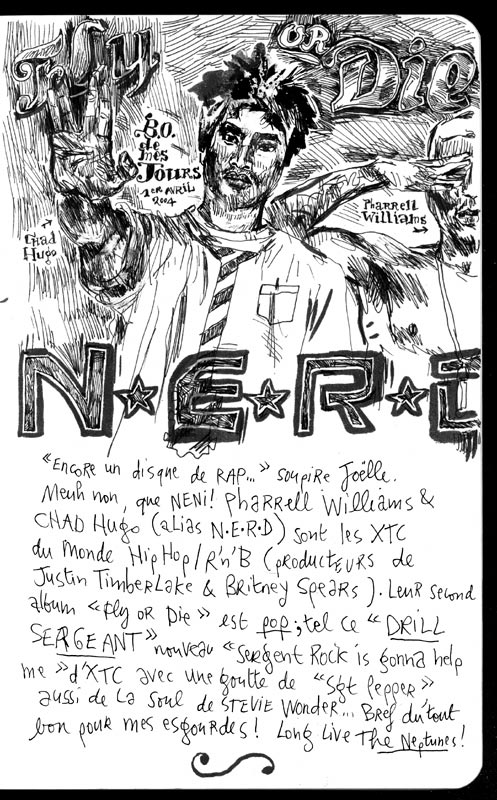 Fly
OR
Die
B.O.
de
mes
Jours
1er AVRIL
2004
Chad
Hugo
Pharrell
Williams
N★E★R★D
"Encore un disque de RAP..." soupire Joëlle.
Meuh non, que NENI! Pharrell Williams &
CHAD Hugo (alias N.E.R.D) sont les XTC
du Monde HipHop/R'n'B (producteurs de
Justin Timberlake & Britney Spears). Leur second
album "Fly or Die" est pop; tel ce "DRILL
SERGEANT" nouveau "Sergent Rock is gonna help
me" d'XTC avec une goutte de "Sgt Pepper"
aussi de la Soul de STEVIE Wonder... Bref du tout
bon pour mes esgourdes! Long Live The Neptunes!